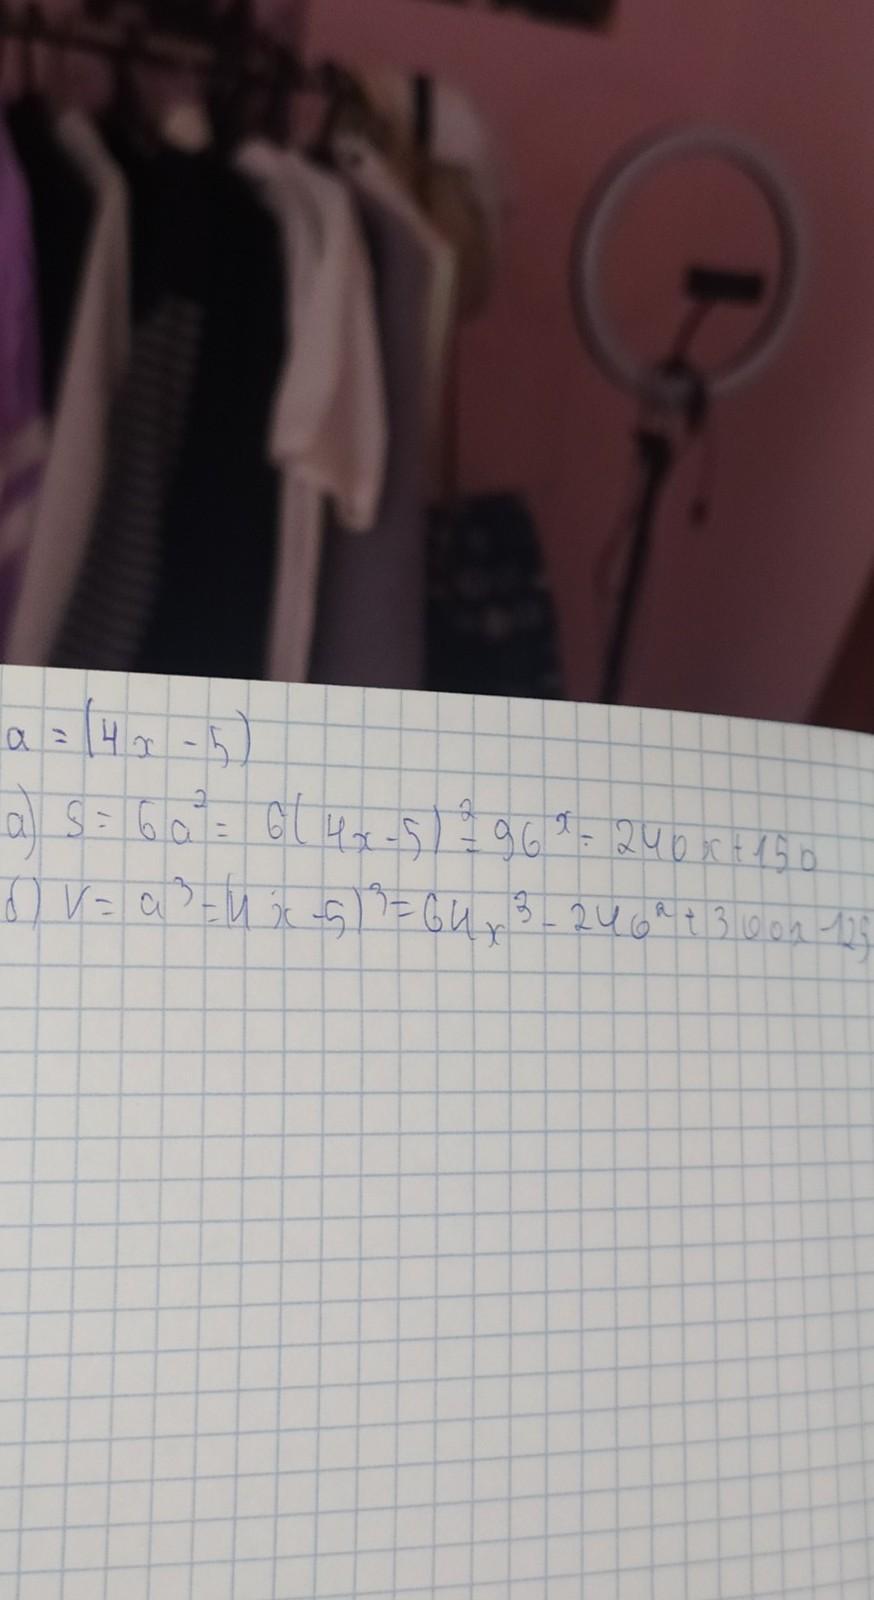 a = (4x - 5)
а) S = 6a² = 6(4x - 5)² = 96ˣ - 240x + 150
б) V = a³ = (4x - 5)³ = 64x³ - 240² + 300x - 125